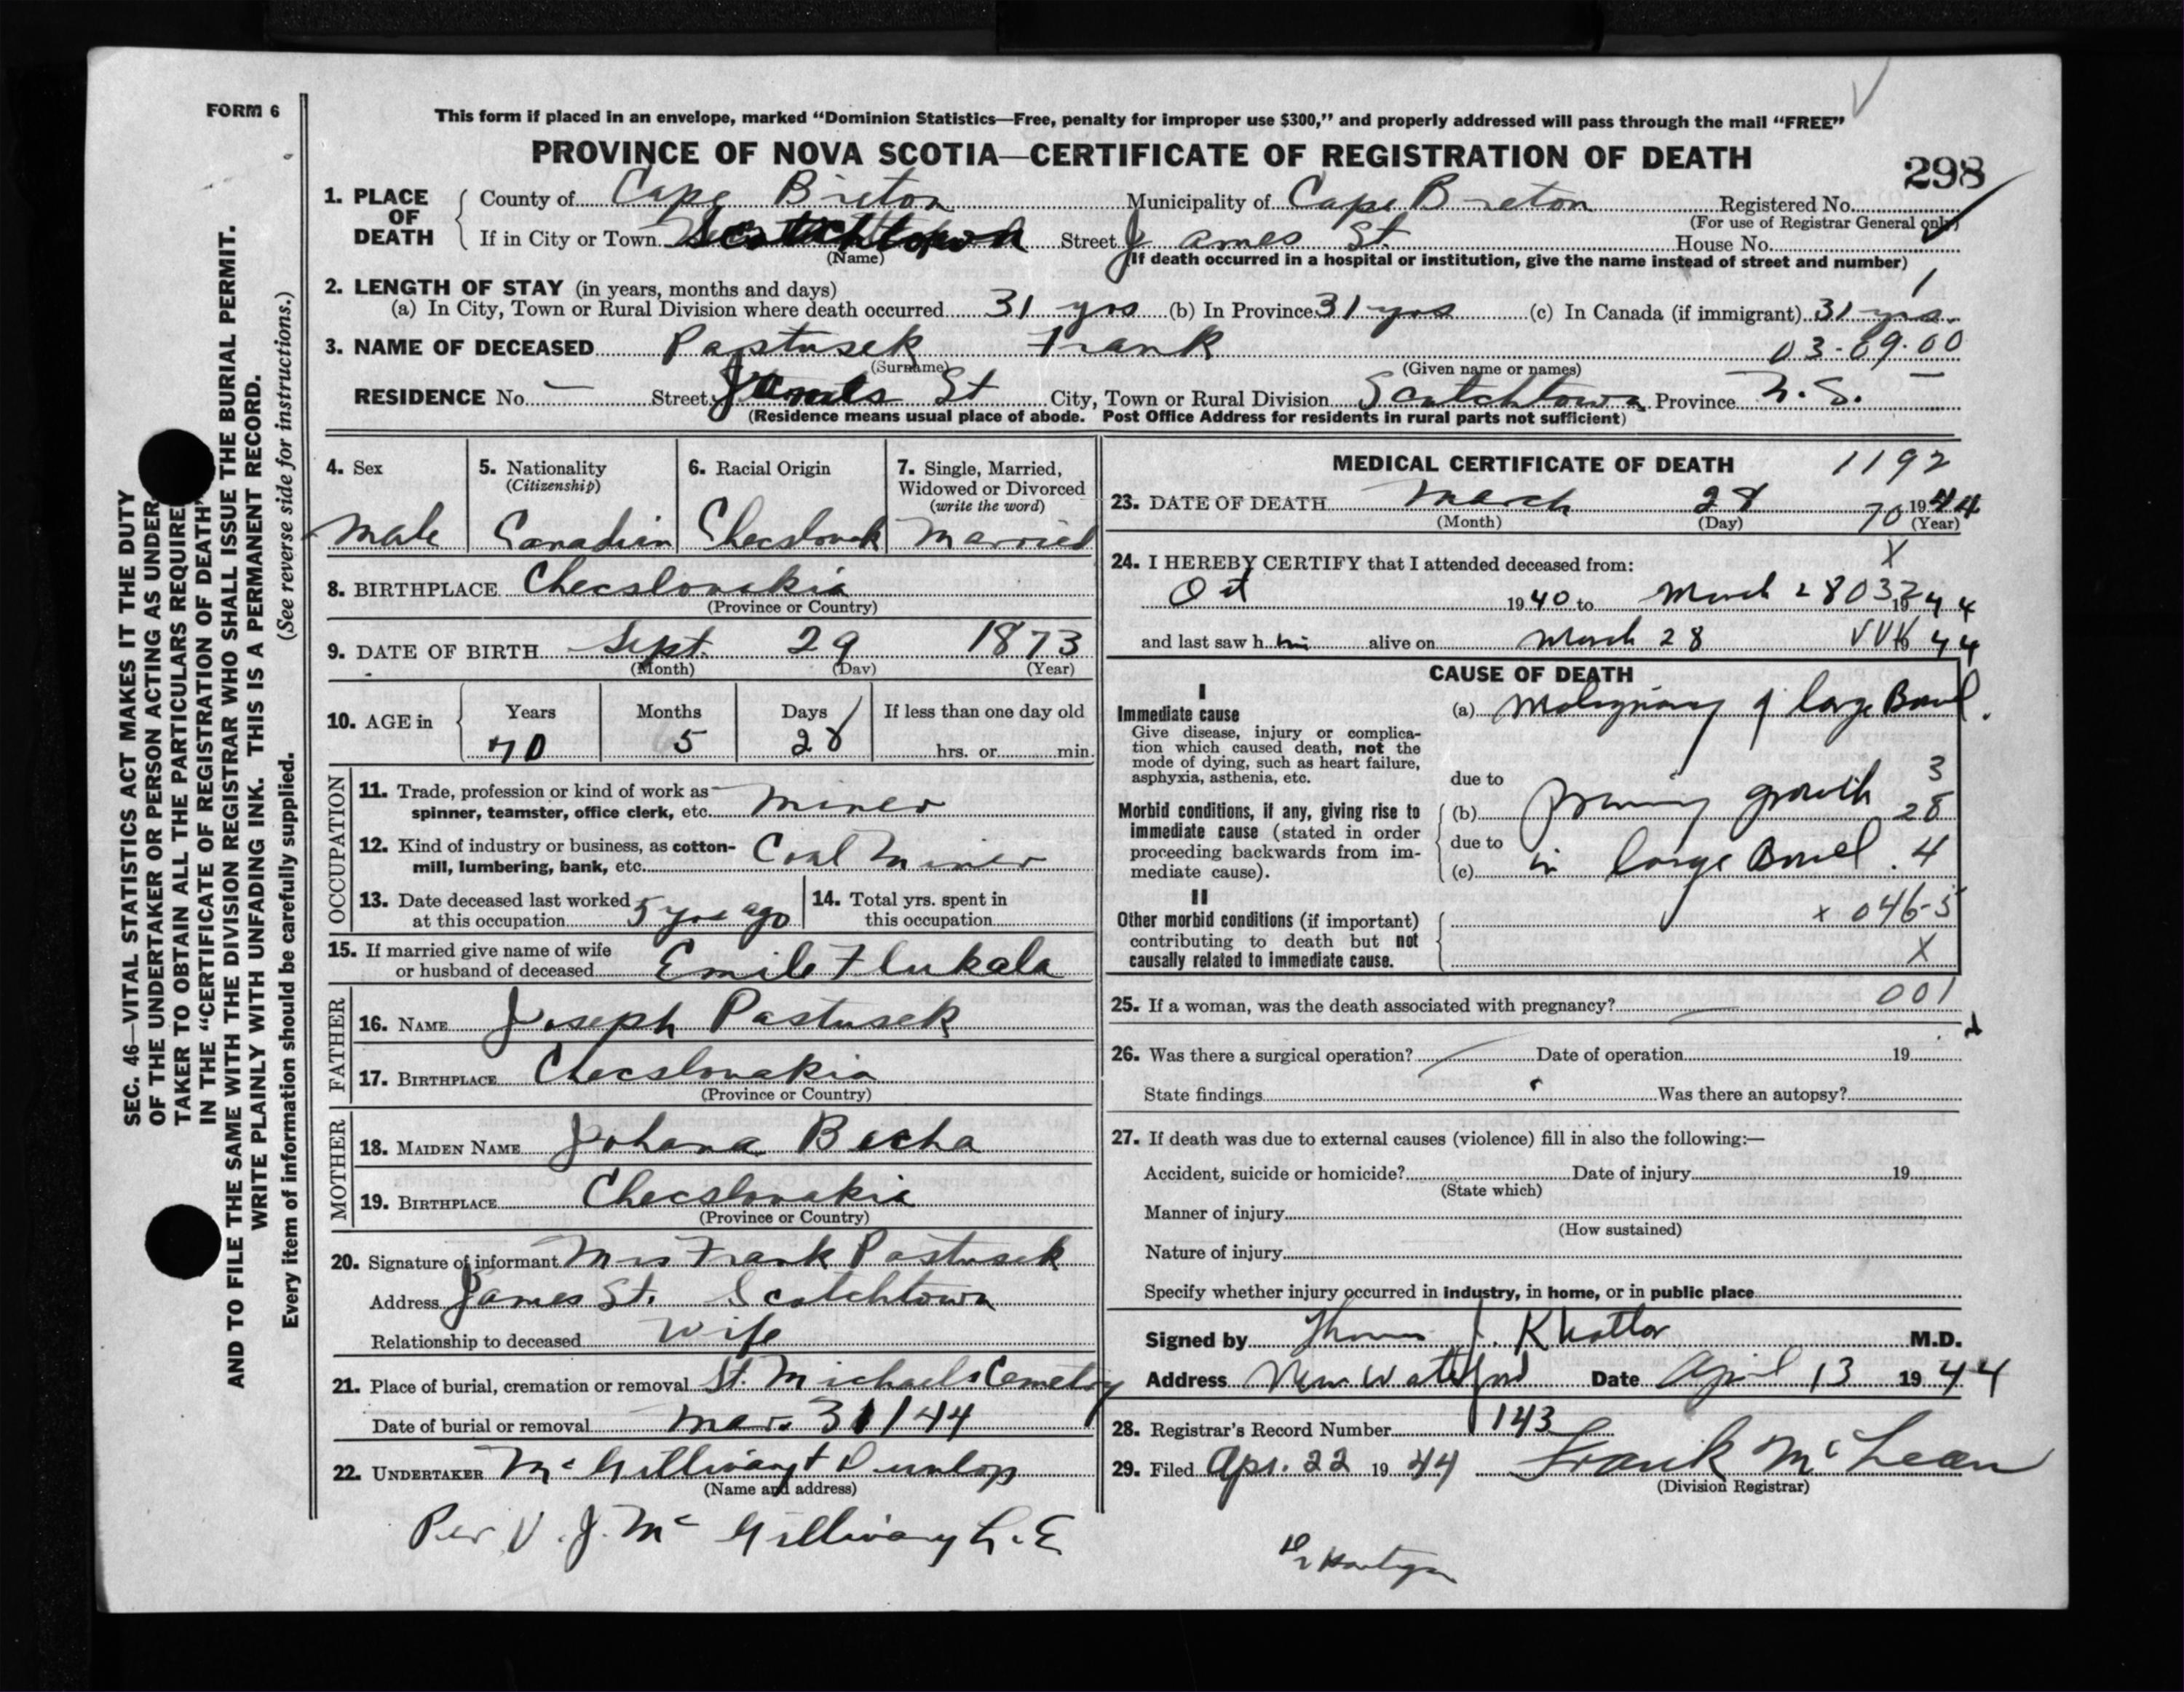 FORM 6
This form if placed in an envelope, marked “Dominion Statistics—Free, penalty for improper use $300,” and properly addressed will pass through the mail “FREE”
PROVINCE OF NOVA SCOTIA—CERTIFICATE OF REGISTRATION OF DEATH
298
1. PLACE OF DEATH County of Cape Breton Municipality of Cape Breton Registered No.
(For use of Registrar General only)
If in City or Town Scotchtown Street James St. House No.
(Name) (If death occurred in a hospital or institution, give the name instead of street and number)
2. LENGTH OF STAY (in years, months and days)
(a) In City, Town or Rural Division where death occurred 31 yrs (b) In Province 31 yrs (c) In Canada (if immigrant) 31 yrs.
3. NAME OF DECEASED Pastusek Frank 03-09-00
(Surname) (Given name or names)
RESIDENCE No. — Street James St City, Town or Rural Division Scotchtown Province N.S.
(Residence means usual place of abode. Post Office Address for residents in rural parts not sufficient)
4. Sex Male
5. Nationality (Citizenship) Canadian
6. Racial Origin Checslovak
7. Single, Married, Widowed or Divorced (write the word) Married
8. BIRTHPLACE Checslovakia
(Province or Country)
9. DATE OF BIRTH Sept. 29 1873
(Month) (Day) (Year)
10. AGE in Years 70 Months 5 Days 28 If less than one day old hrs. or min.
OCCUPATION
11. Trade, profession or kind of work as spinner, teamster, office clerk, etc. Miner
12. Kind of industry or business, as cotton-mill, lumbering, bank, etc. Coal Miner
13. Date deceased last worked at this occupation 5 yrs ago
14. Total yrs. spent in this occupation
15. If married give name of wife or husband of deceased Emile Flukala
FATHER
16. NAME Joseph Pastusek
17. BIRTHPLACE Checslovakia
(Province or Country)
MOTHER
18. MAIDEN NAME Johana Bacha
19. BIRTHPLACE Checslovakia
(Province or Country)
20. Signature of informant Mrs Frank Pastusek
Address James St. Scotchtown
Relationship to deceased Wife
21. Place of burial, cremation or removal St. Michaels Cemetry
Date of burial or removal Mar. 31/44
22. UNDERTAKER McGillivary + Dunlop
(Name and address)
Per V. J. McGillivary L.E.
MEDICAL CERTIFICATE OF DEATH 1192
23. DATE OF DEATH March 28 1944
70
(Month) (Day) (Year)
24. I HEREBY CERTIFY that I attended deceased from: X
Oct 1940 to March 28 032 1944
and last saw him alive on March 28 1944
CAUSE OF DEATH
I
Immediate cause
Give disease, injury or complication which caused death, not the mode of dying, such as heart failure, asphyxia, asthenia, etc.
(a) Malignancy of large Bowel.
due to 3
Morbid conditions, if any, giving rise to immediate cause (stated in order proceeding backwards from immediate cause).
(b) growth 28
due to
(c) in large Bowel. 4
II
Other morbid conditions (if important) contributing to death but not causally related to immediate cause.
x 046-5
X
25. If a woman, was the death associated with pregnancy? — 001
26. Was there a surgical operation? Date of operation 19
State findings Was there an autopsy?
27. If death was due to external causes (violence) fill in also the following:—
Accident, suicide or homicide? Date of injury 19
(State which)
Manner of injury
(How sustained)
Nature of injury
Specify whether injury occurred in industry, in home, or in public place
Signed by Thomas J. Khattar M.D.
Address New Waterford Date April 13 1944
28. Registrar’s Record Number 143
29. Filed Apr. 22 1944 Frank McLean
(Division Registrar)
SEC. 46—VITAL STATISTICS ACT MAKES IT THE DUTY
OF THE UNDERTAKER OR PERSON ACTING AS UNDER
TAKER TO OBTAIN ALL THE PARTICULARS REQUIRE
IN THE “CERTIFICATE OF REGISTRATION OF DEATH”
AND TO FILE THE SAME WITH THE DIVISION REGISTRAR WHO SHALL ISSUE THE BURIAL PERMIT.
WRITE PLAINLY WITH UNFADING INK. THIS IS A PERMANENT RECORD.
Every item of information should be carefully supplied. (See reverse side for instructions.)